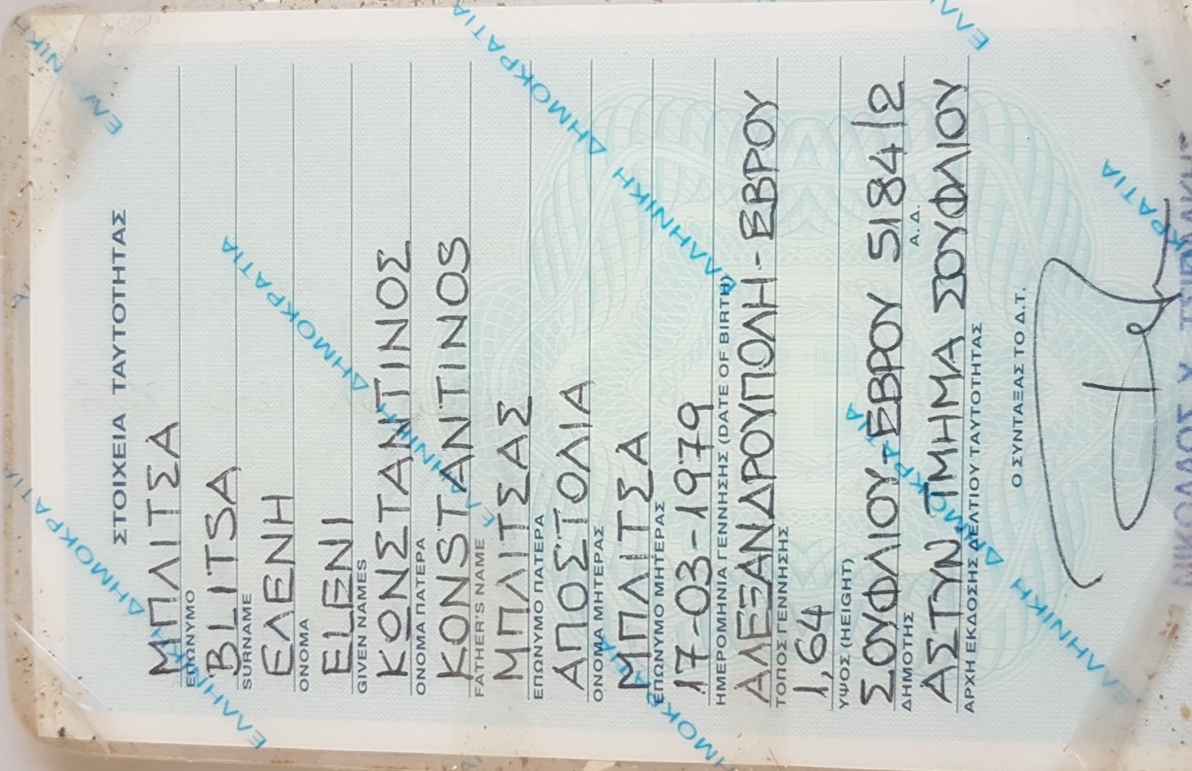 ΣΤΟΙΧΕΙΑ ΤΑΥΤΟΤΗΤΑΣ
ΜΠΛΙΤΣΑ
ΕΠΩΝΥΜΟ
BLITSA
SURNAME
ΕΛΕΝΗ
ΟΝΟΜΑ
ELENI
GIVEN NAMES
ΚΩΝΣΤΑΝΤΙΝΟΣ
ΟΝΟΜΑ ΠΑΤΕΡΑ
KONSTANTINOS
FATHER'S NAME
ΜΠΛΙΤΣΑΣ
ΕΠΩΝΥΜΟ ΠΑΤΕΡΑ
ΑΠΟΣΤΟΛΙΑ
ΟΝΟΜΑ ΜΗΤΕΡΑΣ
ΜΠΛΙΤΣΑ
ΕΠΩΝΥΜΟ ΜΗΤΕΡΑΣ
17-03-1979
ΗΜΕΡΟΜΗΝΙΑ ΓΕΝΝΗΣΗΣ (DATE OF BIRTH)
ΑΛΕΞΑΝΔΡΟΥΠΟΛΗ-ΕΒΡΟΥ
ΤΟΠΟΣ ΓΕΝΝΗΣΗΣ
1,64
ΥΨΟΣ (HEIGHT)
ΣΟΥΦΛΙΟΥ-ΕΒΡΟΥ 5184/2
ΔΗΜΟΤΗΣ Α.Δ.
ΑΣΤΥΝ. ΤΜΗΜΑ ΣΟΥΦΛΙΟΥ
ΑΡΧΗ ΕΚΔΟΣΗΣ ΔΕΛΤΙΟΥ ΤΑΥΤΟΤΗΤΑΣ
Ο ΣΥΝΤΑΞΑΣ ΤΟ Δ.Τ.
ΕΛΛΗΝΙΚΗ ΔΗΜΟΚΡΑΤΙΑ
ΕΛΛΗΝΙΚΗ ΔΗΜΟΚΡΑΤΙΑ
ΕΛΛΗΝΙΚΗ ΔΗΜΟΚΡΑΤΙΑ